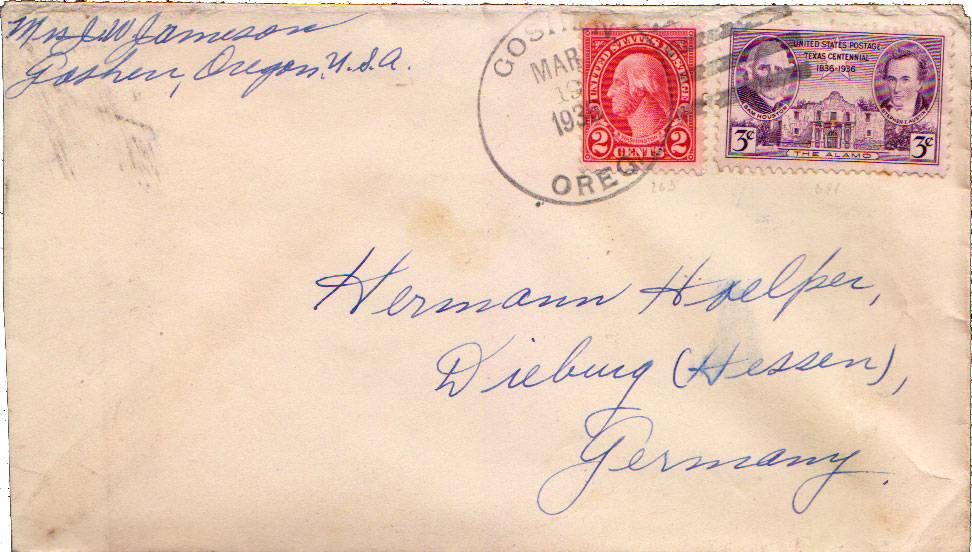 Mrs J. W. Jameson
Goshen, Oregon, U.S.A.
GOSHEN
MAR
19
193
OREG
UNITED STATES POSTAGE
WASHINGTON
2 CENTS 2
UNITED STATES POSTAGE
TEXAS CENTENNIAL
1836-1936
SAM HOUSTON
STEPHEN F. AUSTIN
3¢ 3¢
THE ALAMO
263
Hermann Hoelper,
Dieburg (Hessen),
Germany